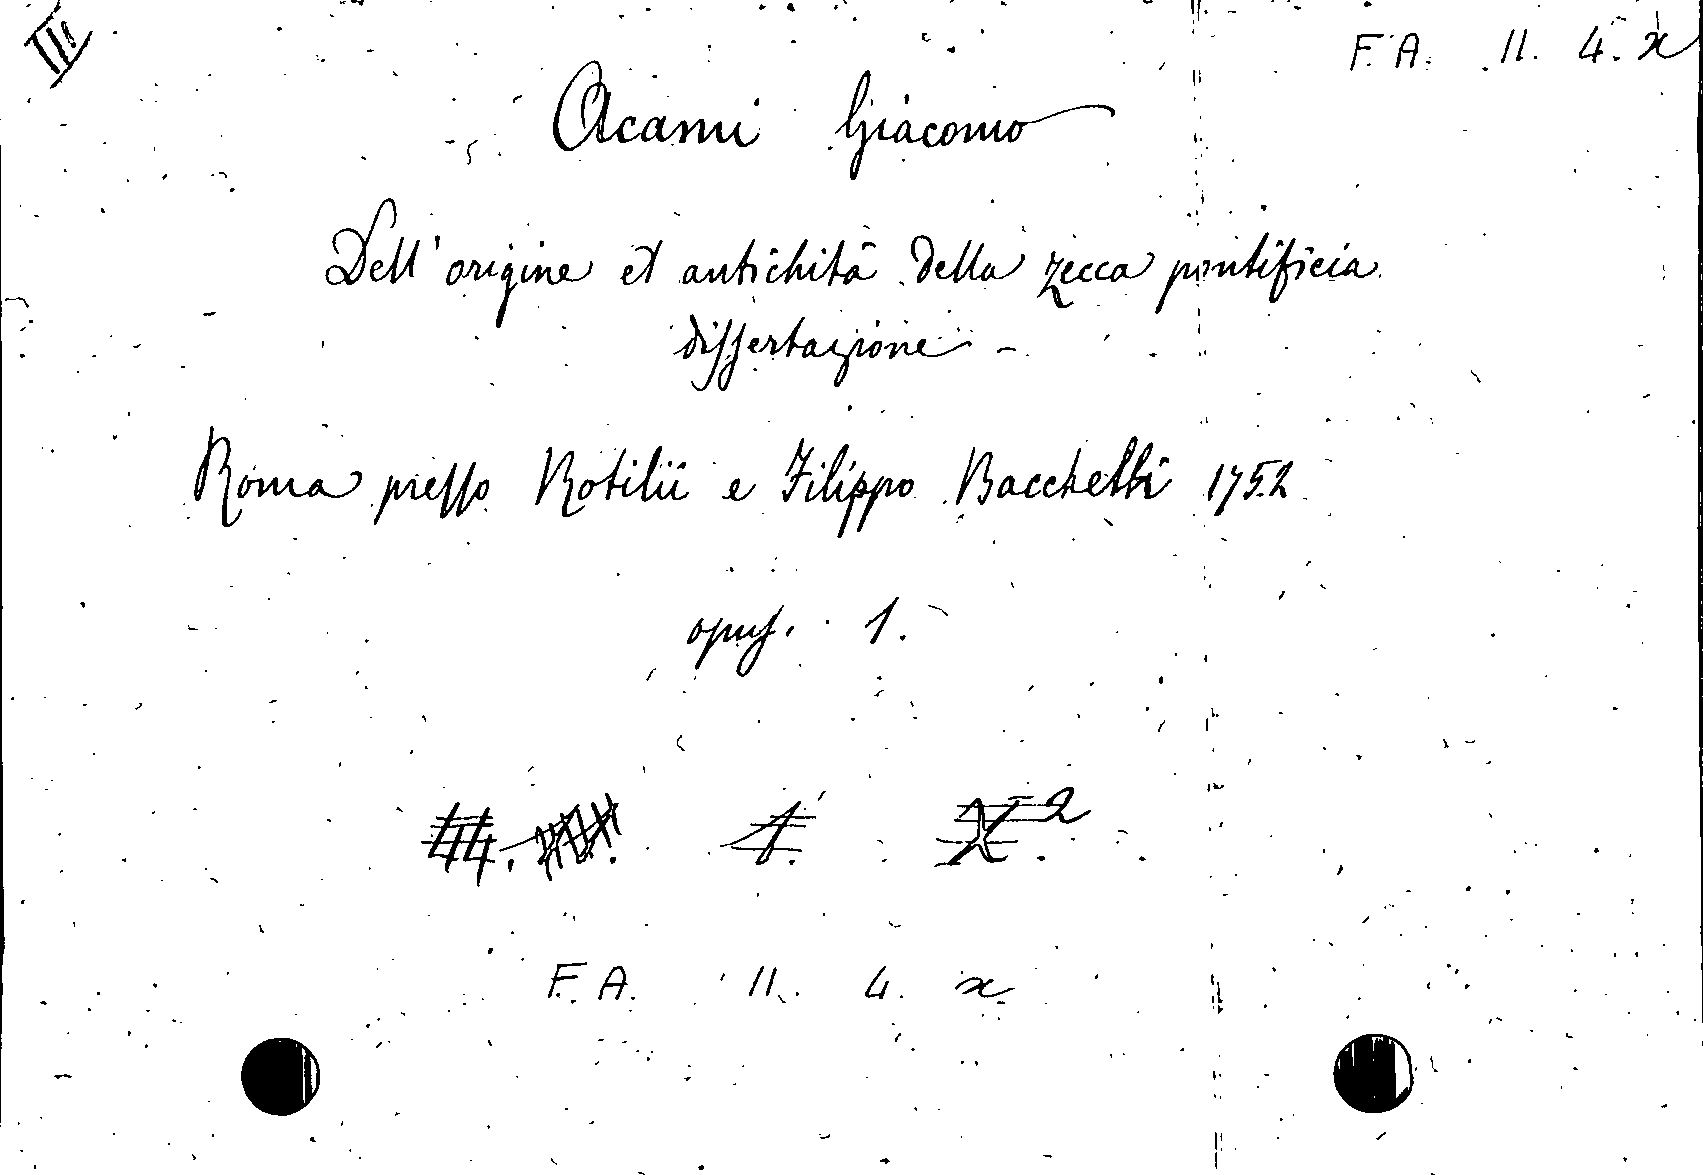 III
F. A. II. 4. x
Acami Giacomo
Dell'origine et antichità della zecca pontificia
dissertazione -
Roma presso Rotilii e Filippo Bacchelli 1752
opus. 1.
F. A. II. 4. x